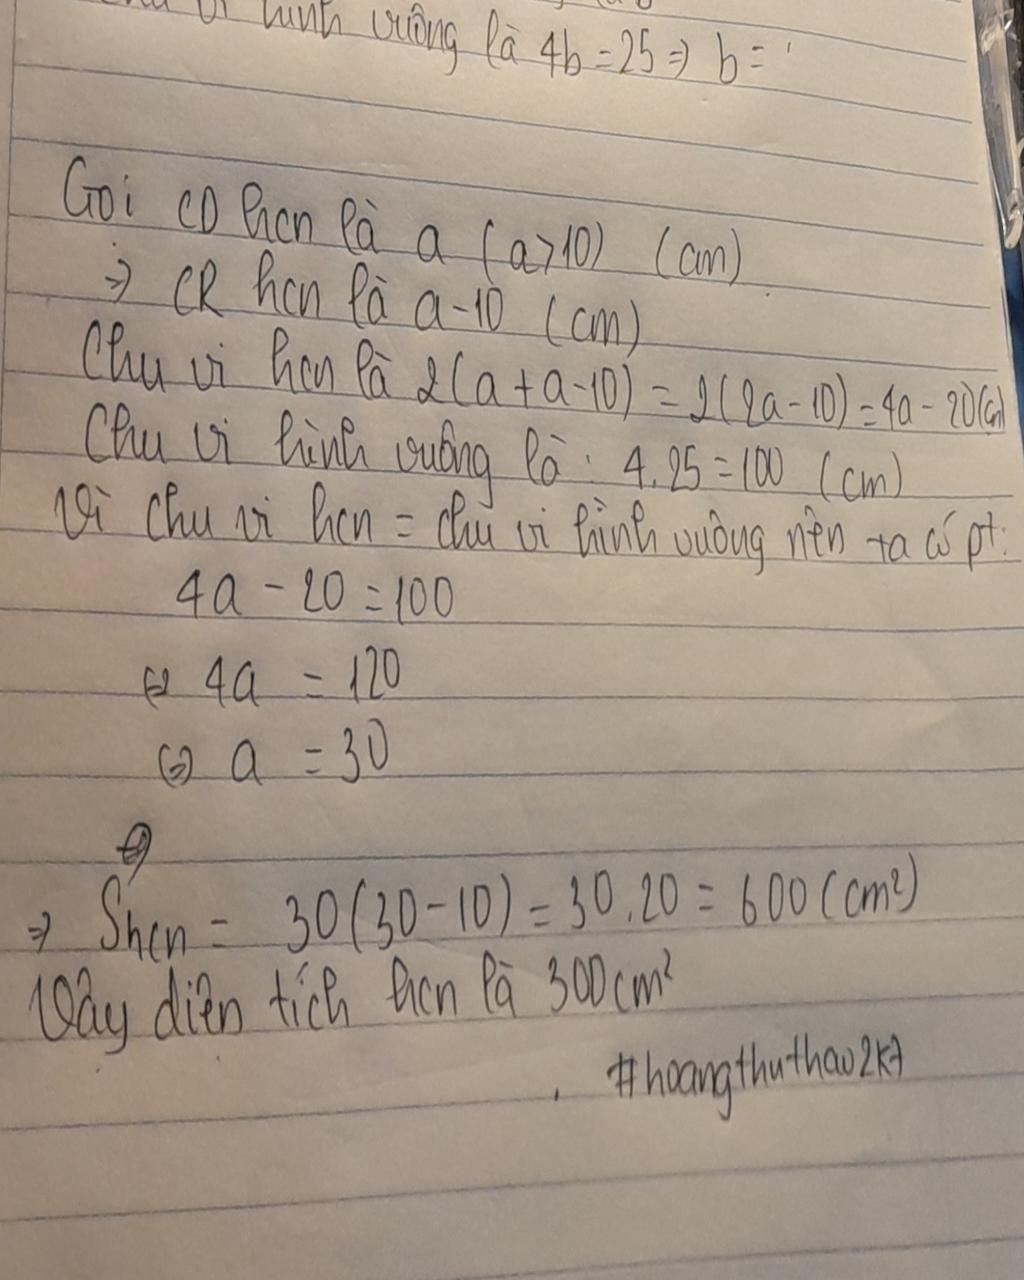 vi hình vuông là 4b = 25 => b =
Gọi CD hcn là a (a>10) (cm)
=> CR hcn là a-10 (cm)
Chu vi hcn là 2(a+a-10) = 2(2a-10) = 4a - 20(cm)
Chu vi hình vuông là : 4.25 = 100 (cm)
Vì chu vi hcn = chu vi hình vuông nên ta có pt:
4a - 20 = 100
<=> 4a = 120
<=> a = 30
=> Shcn = 30(30-10) = 30.20 = 600 (cm²)
Vậy diện tích hcn là 300cm²
#hoangthuthao2k7